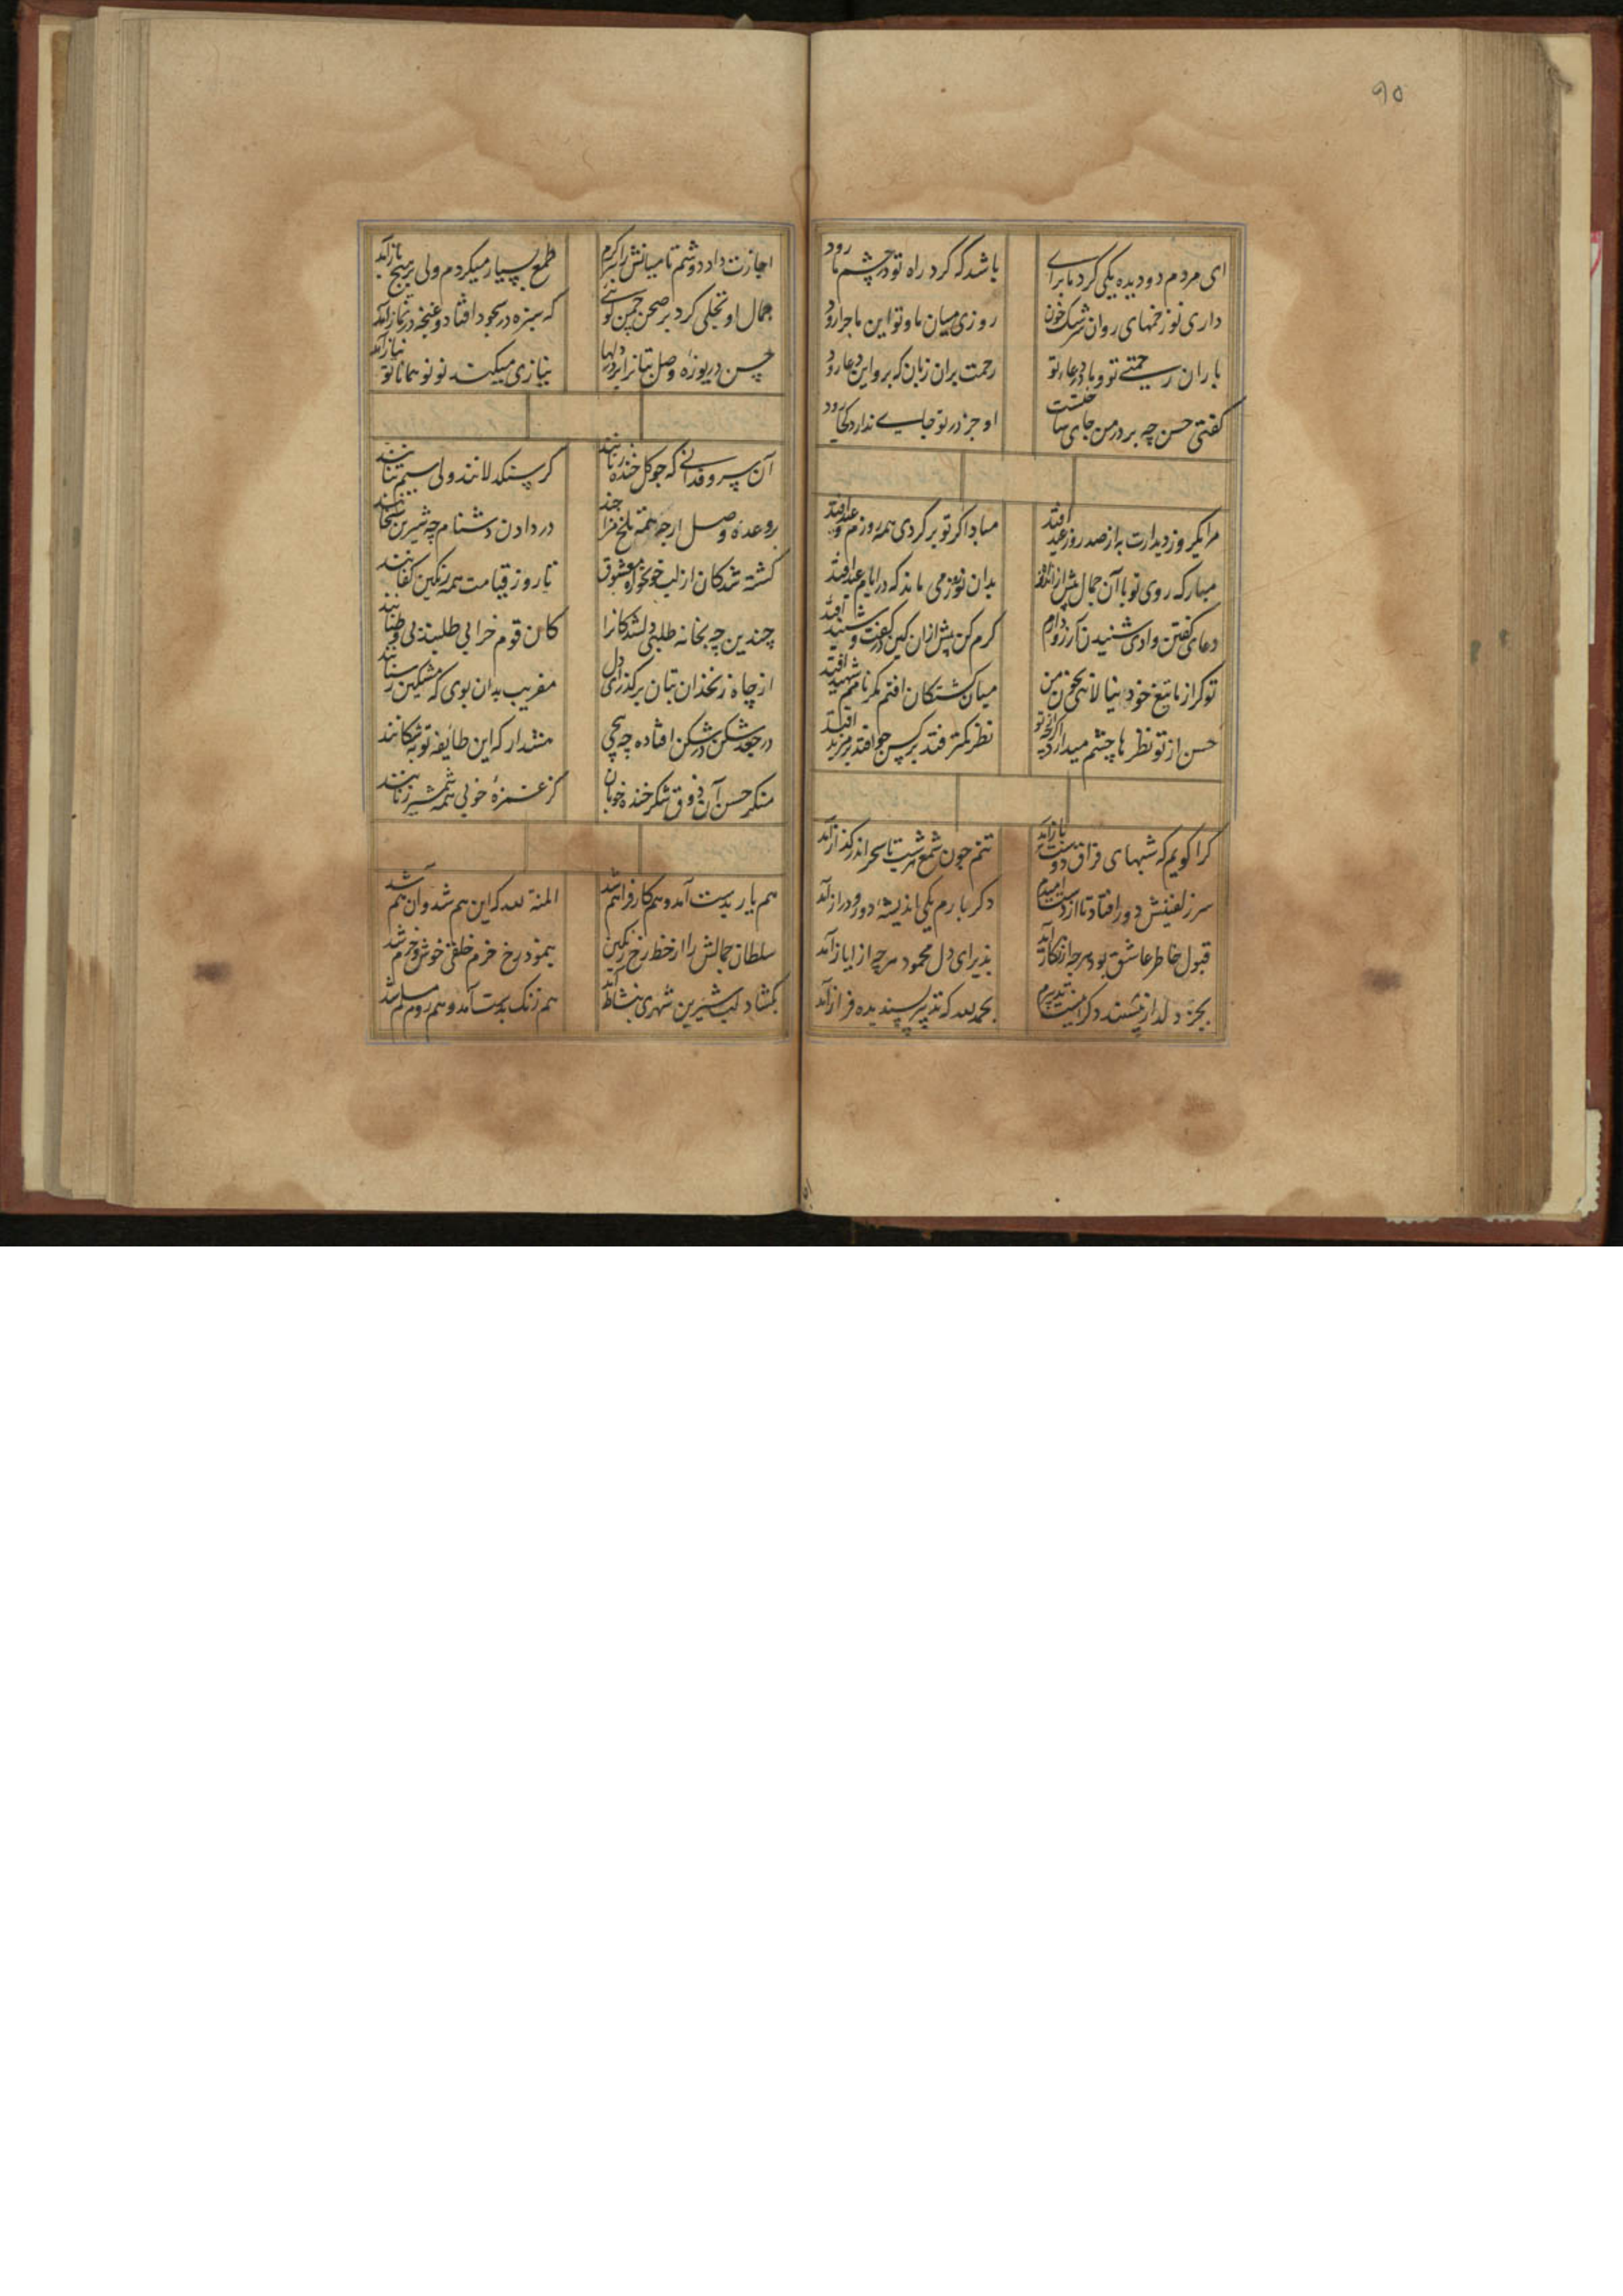 ۹۵
ای مردم دو دیده یکی گرد ما برای باشد که گرد راه تو در چشم ما رود
داری تو زخمهای روان سرشک خون روزی میان ما و تو این ماجرا رود
باران رحمتی تو و ما در دعاء تو رحمت بران زبان که برو این دعا رود
کفتی حسن چه بر در من جای ساختست او جز در تو جایی ندارد کجا رود
مرا یکروز دیدارت به از صد روز عید افتد مبادا کر تو برکردی همه روزم وعید افتد
مبارکه روی تو با آن جمال بیش از اندازه بدان نوروز می ماند که در ایام عید افتد
دعای کفتن وادی شنیدن آرزو دارم کرم کن پیش ازان کین در کفت و شنید افتد
تو کر از ما تیغ خود بخون من میان کشتکان افتم مکر نامم شهید افتد
حسن از تو نظرها چشم میدارد اکرچه تو نظر کمتر فتد بر کس جو افتد بر مزید افتد
کرا کویم که شبهای فراق دوست باز آمد تنم جون شمع هر شب تا سحر اندر کداز آمد
سر زلفینش دور افتاد تا از دست امیدم دکر بارم یکی اندیشهٔ دور و دراز آمد
قبول خاطر عاشق بود هرجه از نکار آمد پذیرای دل محمود هرچه از ایاز آمد
بجز دلدار نپسندد دکر بحمدلله که تدبیر پسندیده فراز آمد
اجازت داد دوشم تا میانش را طمع بسیار میکردم ولی بر هیچ باز آمد
جمال او تجلی کرد بر صحن چمن کوئی که سبزه در سجود افتاد و غنچه در نماز آمد
حسن دریوزهٔ وصل بتانرا بر در دلها نیازی میکند نو نو همانا تو نیاز آمد
آن سروقدانی که جو کل خنده زنانند کر سنکدلانند ولی سیم تنانند
در وعدهٔ وصل ارجه همه تلخ مزاجند در دادن دشنام چه شیرین سخنانند
کشته شدکان از لب خونخوارهٔ معشوق تا روز قیامت همه رنکین کفنانند
چندین چه بخانه طلبی دلشدکانرا کان قوم خرابی طلبند بی وطنانند
از چاه زنخدان بتان بر کذر ای دل مفریب بدان بوی که مشکین رسنانند
در جعد شکن در شکن افتاده چه پیچی هشدار که این طائفه توبه شکنانند
منکر حسن آن ذوق شکر خندهٔ خوبان کز غمزهٔ خونی همه شمشیر زنانند
هم یار بدست آمد و هم کار فراهم شد المنة لله که این هم شد و آن هم شد
سلطان جمالش را از خط رخ رنکین بنمود رخ خرم خلقی خوش و خرم شد
بکشاد لب شیرین شهری بنشاط آمد هم زنک بدست آمد و هم روم مسلم شد